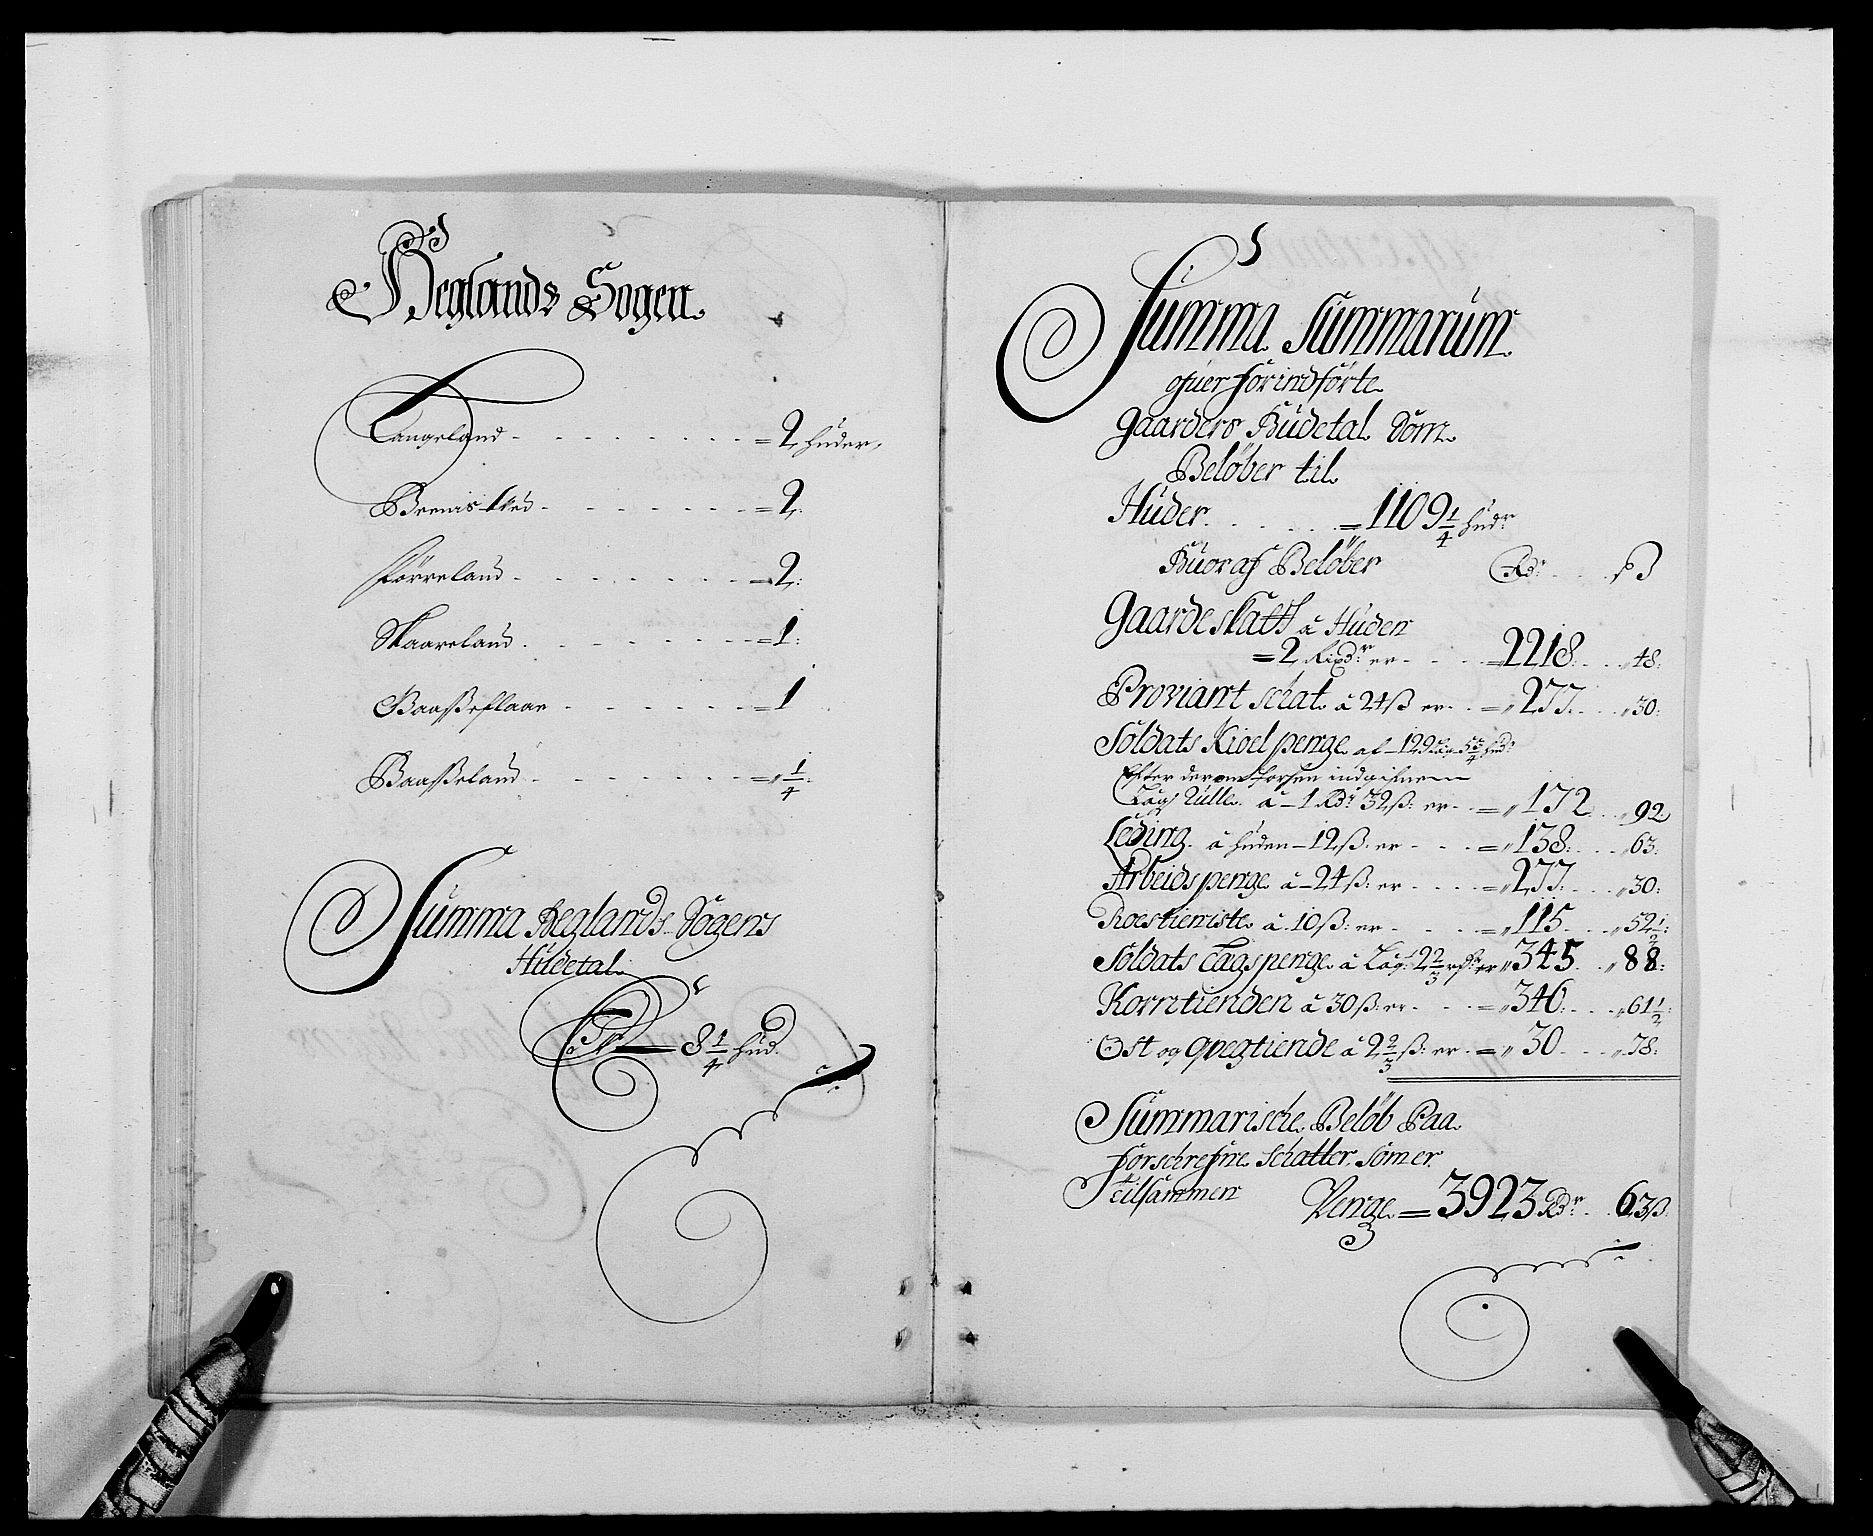 Heglands Sogen.
Langeland - - - = 2 huder,
Brenis - - - = 2,
Førreland - - - = 2:
Skaareland - - - = 1:
Baasseflaae - - - = 1
Baasseland - - - = 1/4
Summa Heglands Sogens
Hüdetal
Er = 8 1/4 hud.
Summa Summarum
ofuer forindførte
Gaarders Hüdetal Som
Beløber til
Hüder. . . . = 1109 1/4 hudr
Huoraf Beløber Rdr - - ß
Gaardeskatt â Hüden
= 2 Rixdr er - - = 2218: - - 48:
Proviant schat â 24 ß er - - = 277. - - 30:
Soldats Kioel penge af 129
Efter indgifuene
Läg Rulle â 1 Rdr 32 ß: er - = 172 - - 92
Leding â huden 12 ß: er - - = 138: - - 63:
Arbeidspenge â 24 ß: er - - = 277. - - 30:
Roestieniste â 10 ß: er - - = 115 - - 52 1/2:
Soldats Lægspenge â Læg 2 2/3 er 345 - 88:
Korntienden â 30 ß: er - - = 346: - - 61 1/2:
Ost og Qvegtiende â 2 2/3 ß: er - = 30 - - 78:
Summarische Beløb Paa
forschrefne Schatter, Som er
tilsammen Penge = 3923 Rdr - 63 ß